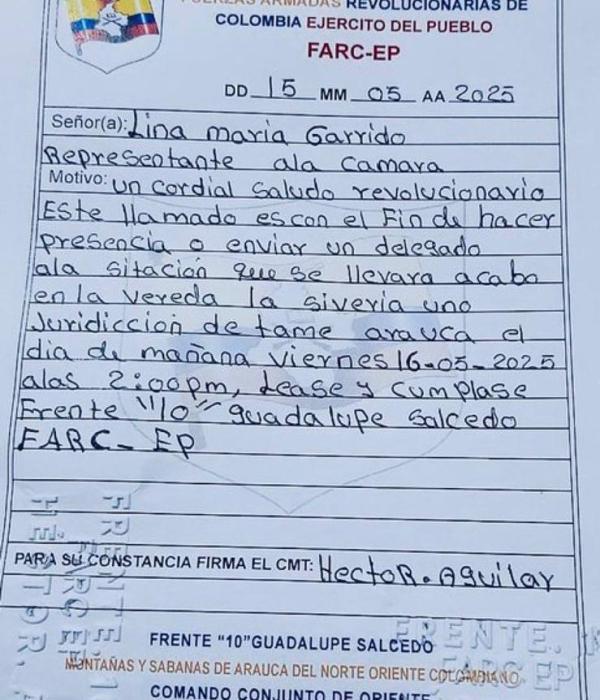 FUERZAS ARMADAS REVOLUCIONARIAS DE
COLOMBIA EJERCITO DEL PUEBLO
FARC-EP
DD 15 MM 05 AA 2025
Señor(a): Lina maria Garrido
Representante ala camara
Motivo: un cordial saludo revolucionario
Este llamado es con el Fin de hacer
presencia o enviar un delegado
ala sitación que se llevara acabo
en la vereda la siveria uno
Juridiccion de tame arauca el
dia de mañana viernes 16-05-2025
alas 2:00pm, Lease y cumplase
Frente "10" guadalupe salcedo
FARC-EP
PARA SU CONSTANCIA FIRMA EL CMT: Hector. Aguilar
FRENTE "10" GUADALUPE SALCEDO
MONTAÑAS Y SABANAS DE ARAUCA DEL NORTE ORIENTE COLOMBIANO
COMANDO CONJUNTO DE ORIENTE
FRENTE.
FARC EP